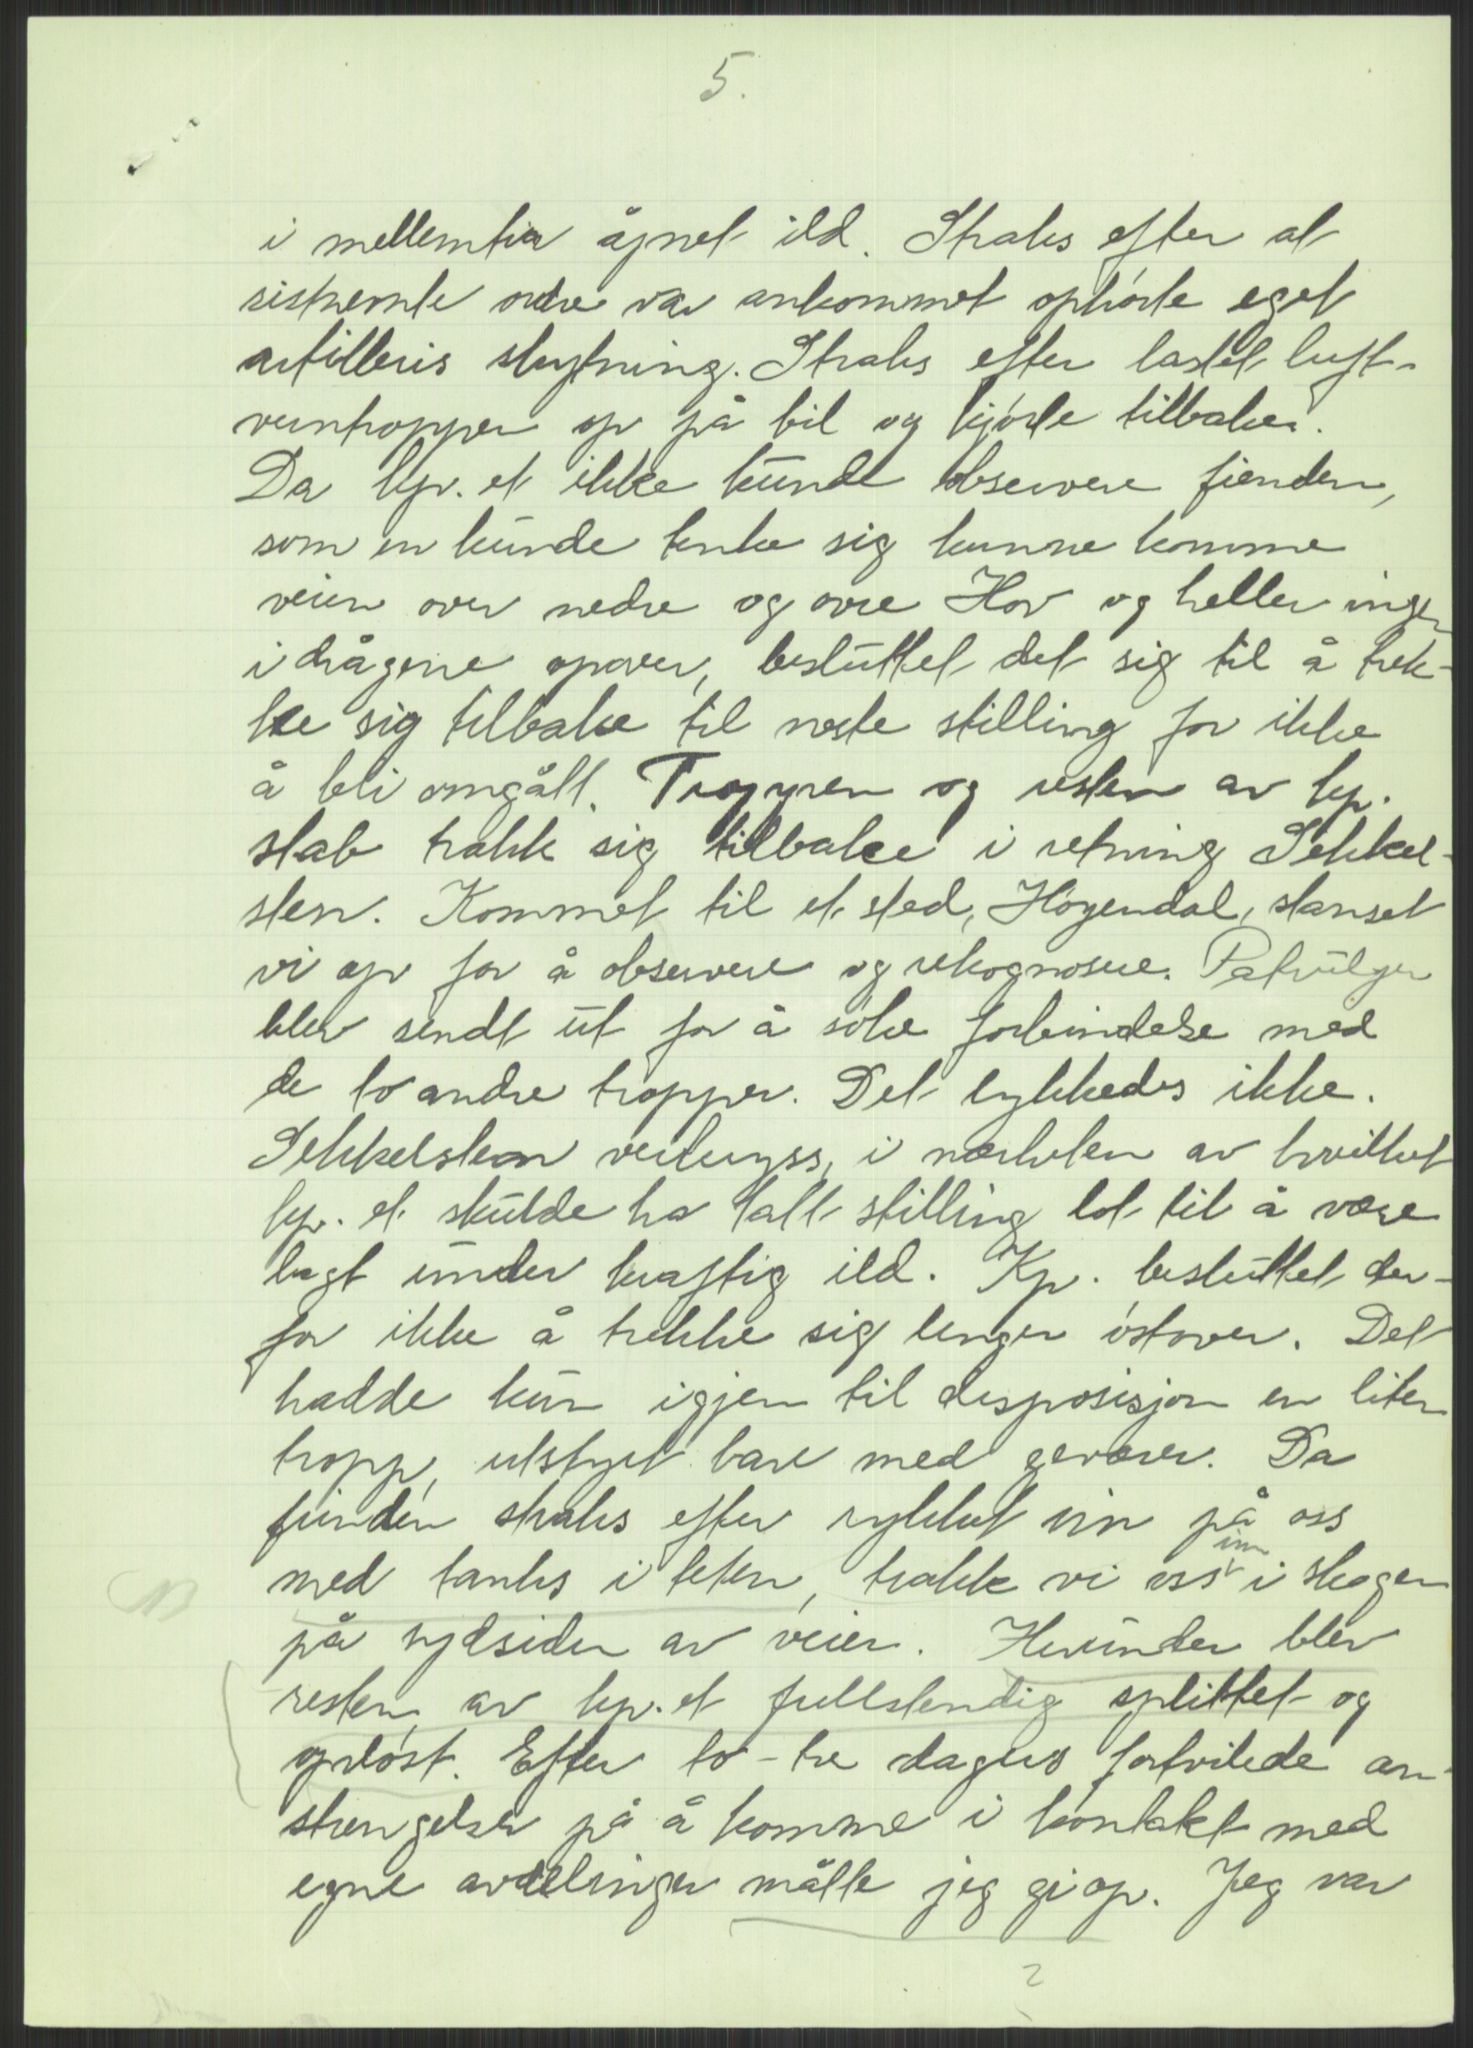 5.
i mellemtia åpnet ild. Straks efter at
sistnemte ordre var ankommet ophörte eget
artilleris skytning. Straks efter lastet luft-
verntroppen op på bil og kjörte tilbake.
Da kp. et ikke kunde observere fienden,
som en kunde tenke sig kunne komme
veien over nedre og øvre Hov og heller ingen
i drågene opover, besluttet det sig til å trek-
ke sig tilbake til neste stilling for ikke
å bli omgått. Troppen og resten av kp.
stab trakk sig tilbake i retning Sekkel-
sten. Kommet til et sted, Högendal, stanset
vi op for å observere og rekognosere. Patruljer
blev sendt ut for å söke forbindelse med
de to andre tropper. Det lykkedes ikke.
Sekkelsten veikryss, i nærheten av hvilket
kp. et skulde ha tatt stilling lot til å være
lagt under kraftig ild. Kp. besluttet der-
for ikke å trekke sig lenger östover. Det
hadde kun igjen til disposisjon en liten
tropp, utstyrt bare med geværer. Da
fienden straks efter rykket inn på oss
med tanks i teten, trakk vi oss inn i skogen
NB
på sydsiden av veien. Herunder blev
resten av kp. et fullstendig splittet og
oplöst. Efter to-tre dagers fortvilede an-
strengelser på å komme i kontakt med
egne avdelinger måtte jeg gi op. Jeg var
?